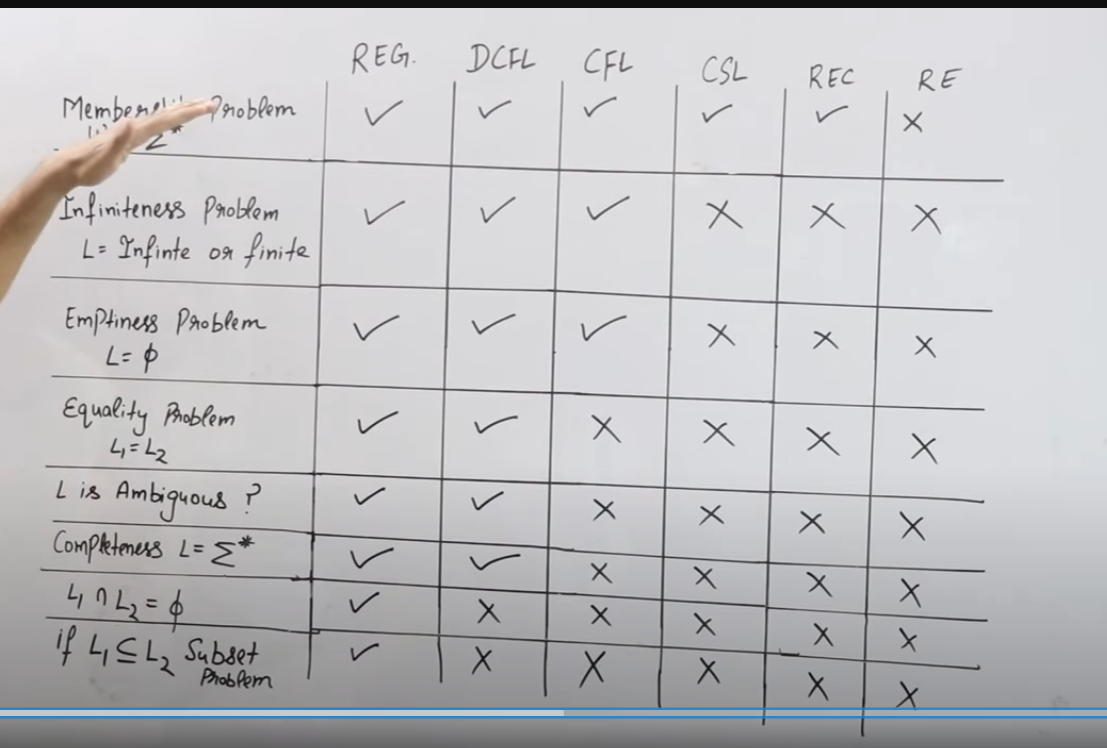 REG. DCFL CFL CSL REC RE
Problem ✓ ✓ ✓ ✓ ✓ ×
Σ*
Infiniteness Problem ✓ ✓ ✓ × × ×
L= Infinte or finite
Emptiness Problem ✓ ✓ ✓ × × ×
L= ϕ
Equality Problem ✓ ✓ × × × ×
L₁=L₂
L is Ambiguous ? ✓ ✓ × × × ×
Completeness L= Σ* ✓ ✓ × × × ×
L₁ ∩ L₂ = ϕ ✓ × × × × ×
if L₁ ⊆ L₂ Subset ✓ × × × × ×
Problem